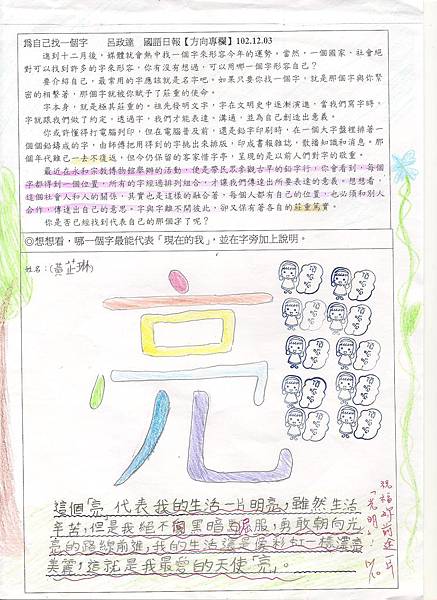 爲自己找一個字　呂政達　國語日報【方向專欄】102.12.03
進到十二月後，媒體就會熱中找一個字來形容今年的運勢。當然，一個國家、社會絕
對可以找到許多的字來形容，你有沒有想過，可以用哪一個字形容自己？
要介紹自己，最常用的字應該就是名字吧。如果只要你找一個字，就是那個字與你緊
密的相繫著，那個字就被你賦予了莊重的使命。
字本身，就是極其莊重的。祖先發明文字，字在文明史中逐漸演進，當我們寫字時，
字就跟我們做了約定，透過字，我們才能表達、溝通，並為自己創造出意義。
你或許懂得打電腦列印，但在電腦普及前，還是鉛字印刷時，在一個大字盤裡排著一
個個鉛鑄成的字，由師傅把用得到的字挑出來排版，印成書報雜誌，散播知識和消息。那
個年代雖已一去不復返，但今仍保留的客家惜字亭，呈現的是以前人們對字的敬重。
最近在永和宗教博物館舉辦的活動，便是帶民眾參觀古早的鉛字行，你會看到，每個
字都得到一個位置，所有的字經過排列組合，才讓我們傳達出所要表達的意義。想想看，
這個社會人和人的關係，其實也是這樣的融合著，每個人都有自己的位置，也必須和別人
合作，傳達出自己的意思。字與字離不開彼此，卻又保有著各自的莊重篤實。
你是否已經找到代表自己的那個字了呢？
◎想想看，哪一個字最能代表「現在的我」，並在字旁加上說明。
姓名：(黃芷琳)
亮
這個「亮」代表我的生活一片明亮，雖然生活
辛苦，但是我絕不向黑暗屈服，勇敢朝向光
亮的路線前進，我的生活還是像彩虹一樣漂亮
美麗，這就是我最愛的天使「亮」。
祝福妳前途一片
「光明」！